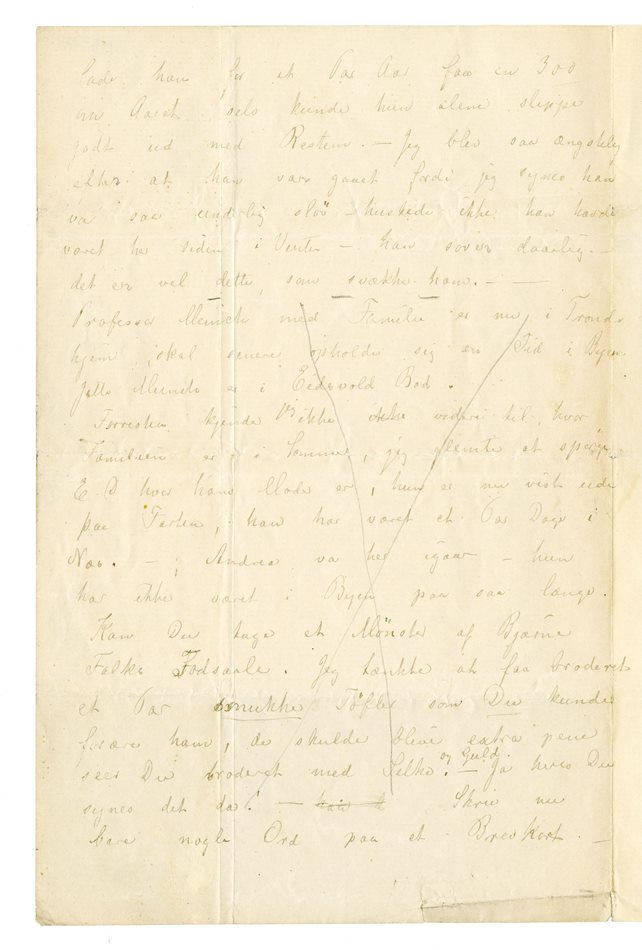 han for et Par Aar faa en 300
om Aaret, selv kunde hun alene slippe
godt ud med Resten. – Jeg blev saa ængstelig
efter at han var gaaet fordi jeg synes han
va' saa underlig sløv – huskede ikke han havde
været he siden i Vinter – han sover daarlig –
det er vel dette, som svække ham. – –
Professor Münich med Familie er nu i Trond-
hjem, skal senere opholde sig en Tid i Byen.
er i Eidsvold Bad.
Forresten kjende Vi ikke videre til, hvor
Familien er i Sommer, jeg glemte at spørge
E. D hvor hans Mode er, hun er nu vist ude
paa Farten, han har været et Par Dage i
Næs. – ; Andrea va her igaar – hun
har ikke været i Byen paa saa længe.
Kan Du tage et Mönster af Bjarne
Falks Fodsaale. Jeg tænkte at faa broderet
et Par smukke Töfler som Du kunde
forære ham, de skulde blive extra pene
seer Du broderet med Silke og Guld. – Ja hvis Du
synes det da! – Skriv nu
bare nogle Ord paa et Brevkort. –